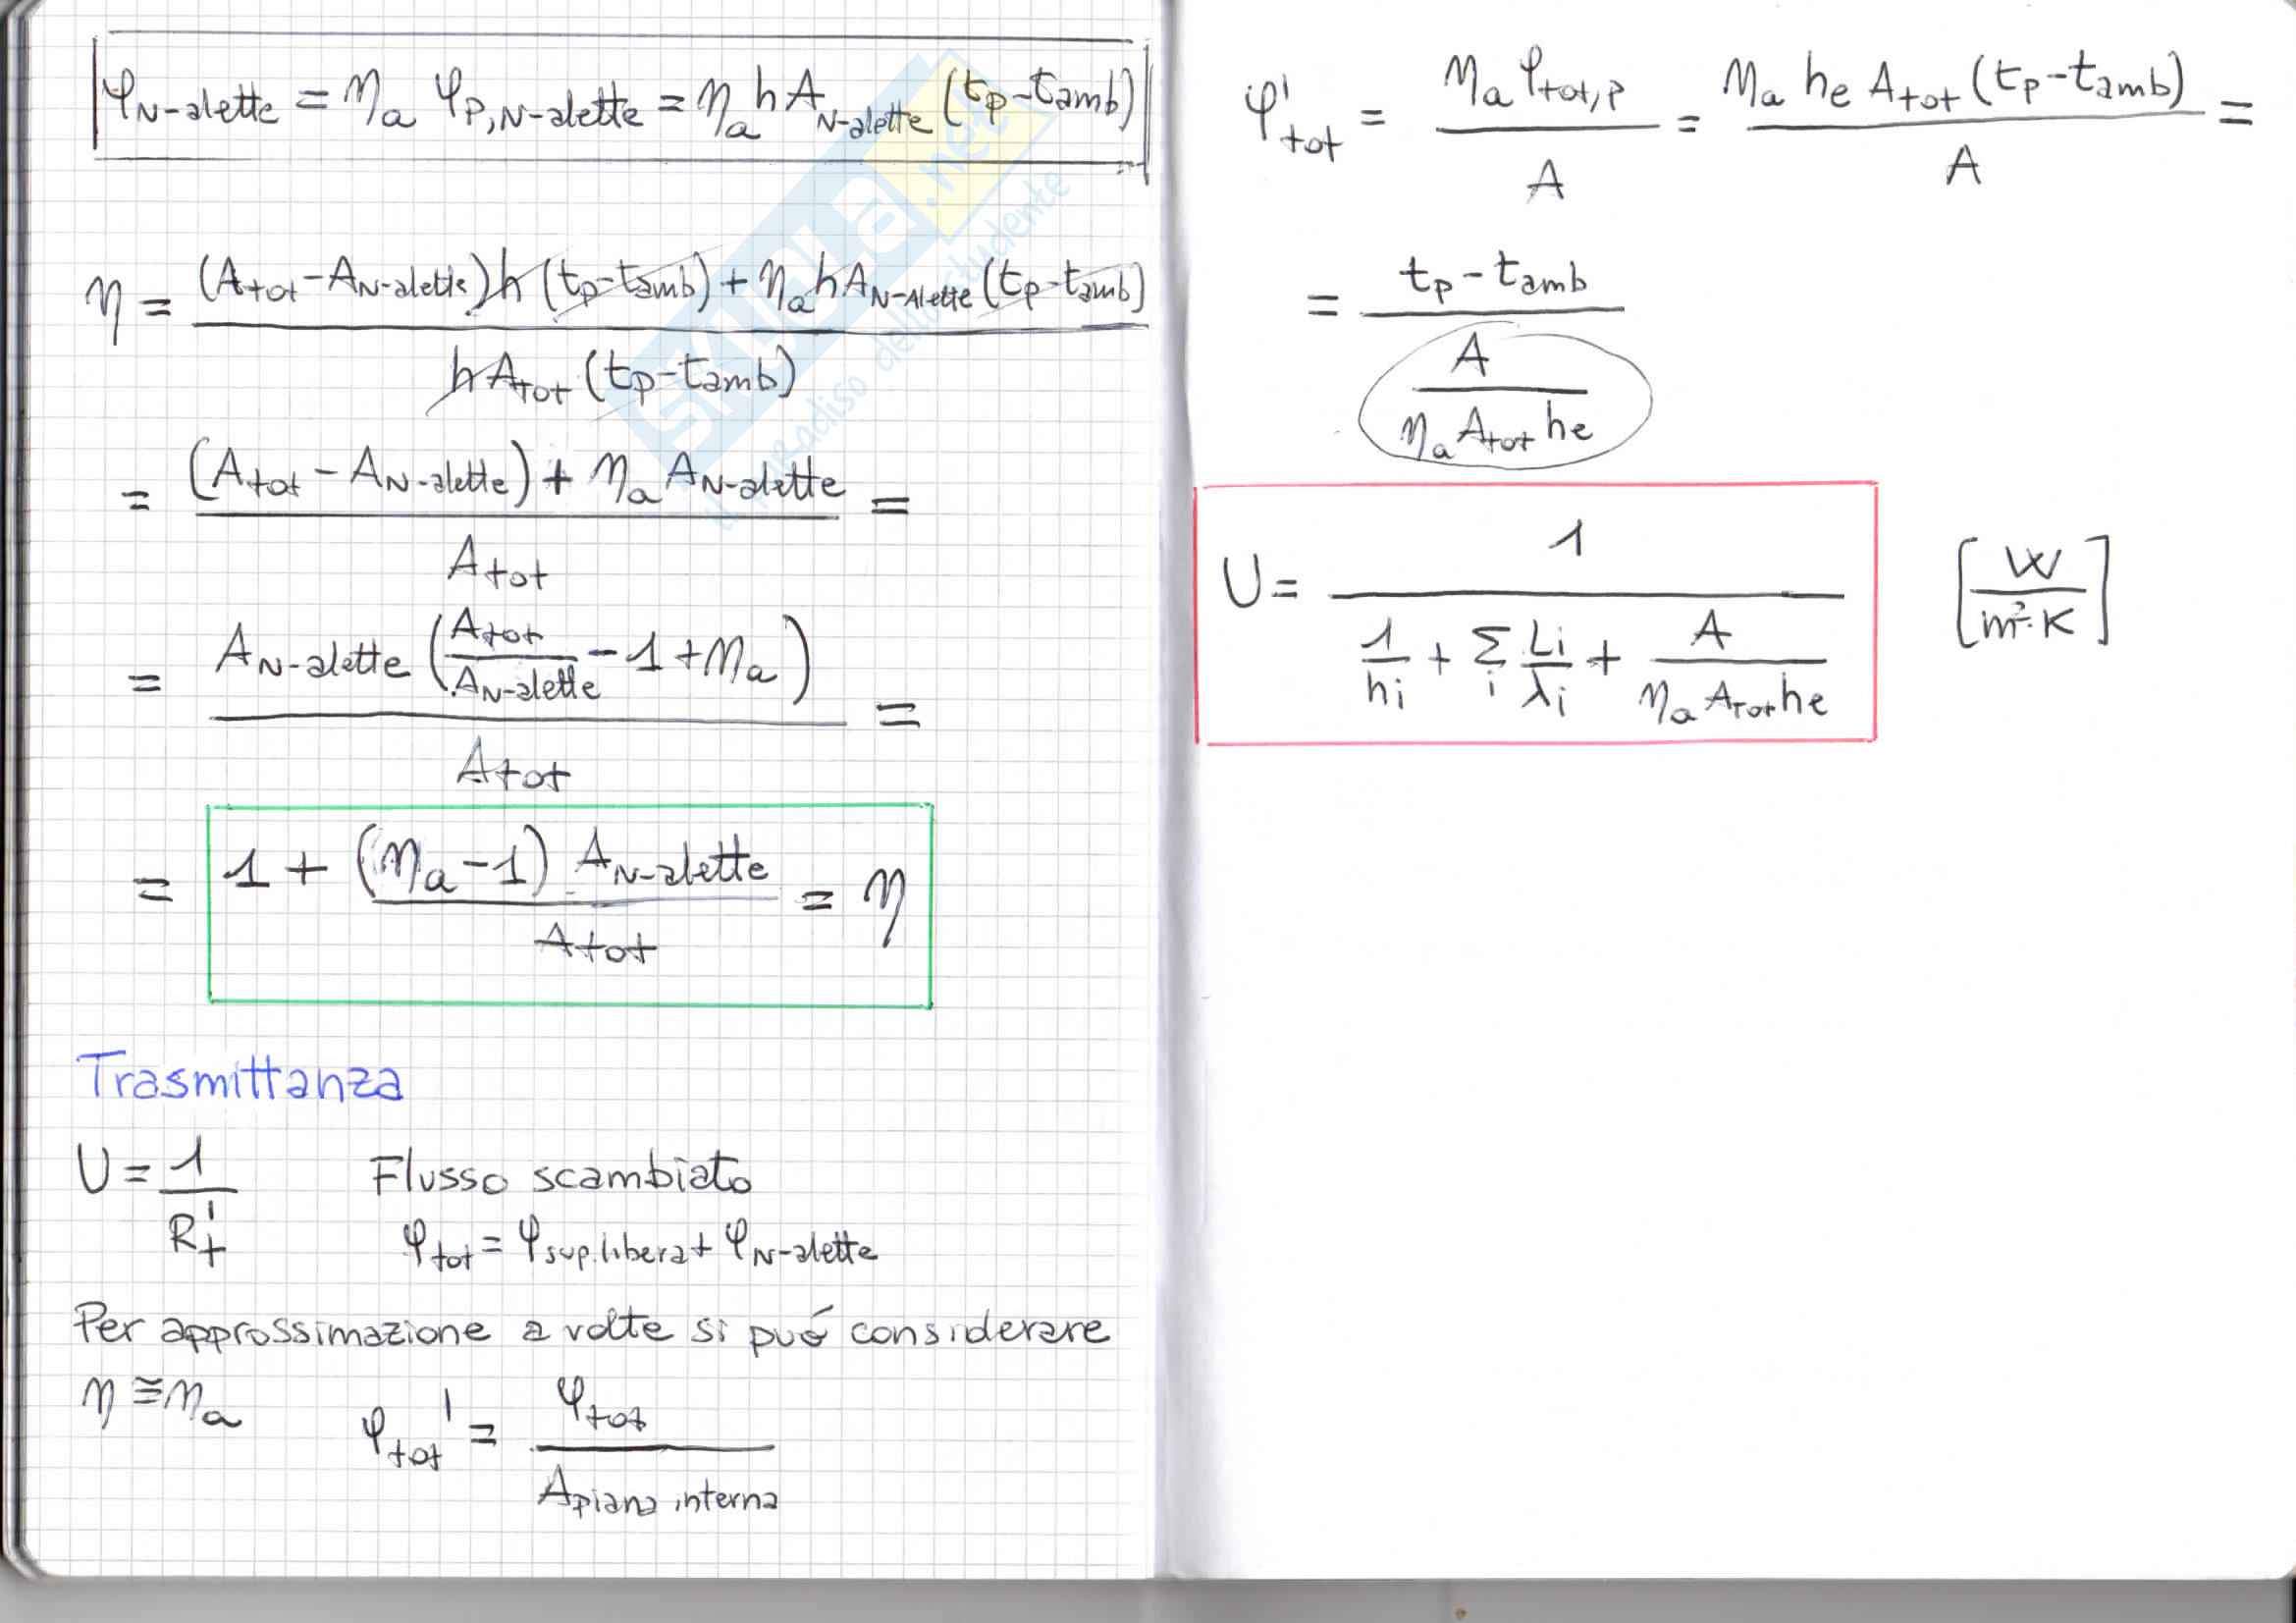 φN-alette = ηa φP,N-alette = ηa h AN-alette (tp-tamb)
η = (Atot - AN-alette) h (tp-tamb) + ηa h AN-alette (tp-tamb) / h Atot (tp-tamb)
= (Atot - AN-alette) + ηa AN-alette / Atot =
= AN-alette (Atot / AN-alette - 1 + ηa) / Atot =
= 1 + (ηa - 1) AN-alette / Atot = η
Trasmittanza
U = 1 / R't
Flusso scambiato
φtot = φsup.libera + φN-alette
Per approssimazione a volte si può considerare
η ≅ ηa
φtot' = φtot / Apiana interna
φ'tot = ηa φtot,P / A = ηa he Atot (tp-tamb) / A =
= tp-tamb / A / ηa Atot he
U = 1 / 1/hi + Σi Li/λi + A / ηa Atot he
[W / m²·K]
SKUOLA.net
il paradiso dello studente